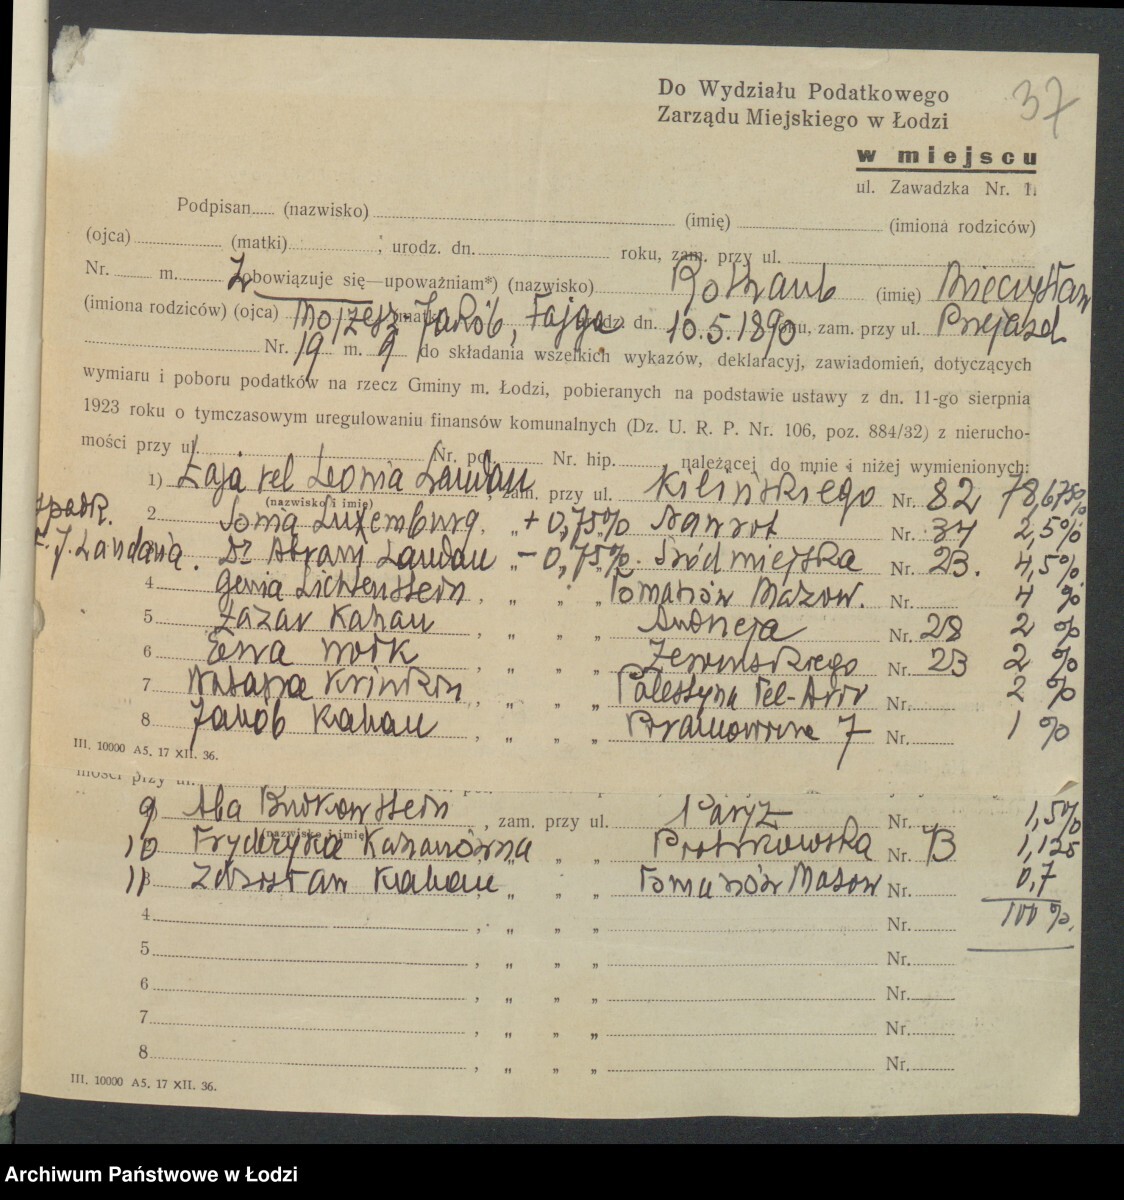 Do Wydziału Podatkowego
Zarządu Miejskiego w Łodzi
37
w miejscu
ul. Zawadzka Nr. 1.
Podpisan..... (nazwisko) (imię) (imiona rodziców)
(ojca) (matki) ; urodz. dn. roku, zam. przy ul.
Nr. m. Zobowiązuje się—upoważniam*) (nazwisko) Rotraub (imię) Mieczysław
(imiona rodziców) (ojca) Mojżesz-Jakób, Fajga urodz. dn. 10.5.1890 roku, zam. przy ul. Przejazd
Nr. 19 m. 9 do składania wszelkich wykazów, deklaracyj, zawiadomień, dotyczących
wymiaru i poboru podatków na rzecz Gminy m. Łodzi, pobieranych na podstawie ustawy z dn. 11-go sierpnia
1923 roku o tymczasowym uregulowaniu finansów komunalnych (Dz. U. R. P. Nr. 106, poz. 884/32) z nierucho-
mości przy ul. Nr. pol. Nr. hip. należącej do mnie i niżej wymienionych:
1) Łaja vel Leonia Landau zam. przy ul. Kilińskiego Nr. 82 78,675%
(nazwisko i imię)
spadk.
2 Sonia Luxemburg, „ + 0,75% Nawrot Nr. 37 2,5%
J. Landaua. Dr Abram Landau „ — 0,75%. Śródmiejska Nr. 23. 4,5%.
4 Genia Lichtenstein, „ „ „ Tomaszów Mazow. Nr. 4 %
5 Łazar Kahan, „ „ „ Andrzeja Nr. 28 2 %
6 Ewa Wołk, „ „ „ Żeromskiego Nr. 23 2 %
7 Natasza Krinkin, „ „ „ Palestyna Tel-Aviv Nr. 2 %
8 Jakób Kahan, „ „ „ 7 Nr. 1 %
III. 10000 A5. 17 XII. 36.
mości przy ul.
9 Aba Bukowstein, zam. przy ul. Paryż Nr. 1,5%
(nazwisko i imię)
10 Fryderyka Kahanówna „ „ Piotrkowska Nr. 73 1,125
11 Zdzisław Kahan, „ „ „ Tomaszów Mazow Nr. 0,7
100 %.
4 , „ „ „ Nr.
5 , „ „ „ Nr.
6 , „ „ „ Nr.
7 , „ „ „ Nr.
8 , „ „ „ Nr.
III. 10000 A5. 17 XII. 36.
Archiwum Państwowe w Łodzi